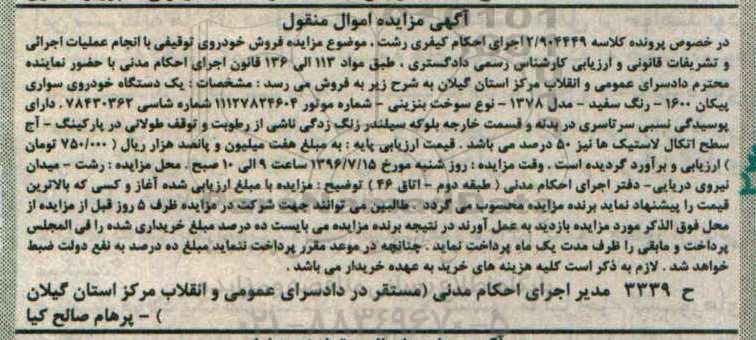 آگهی مزایده اموال منقول
در خصوص پرونده کلاسه ۲/۹۰۴۴۴۹ اجرای احکام کیفری رشت ، موضوع مزایده فروش خودروی توقیفی با انجام عملیات اجرائی
و تشریفات قانونی و ارزیابی کارشناس رسمی دادگستری ، طبق مواد ۱۱۳ الی ۱۳۶ قانون اجرای احکام مدنی با حضور نماینده
محترم دادسرای عمومی و انقلاب مرکز استان گیلان به شرح زیر به فروش می رسد : مشخصات : یک دستگاه خودروی سواری
پیکان ۱۶۰۰ - رنگ سفید - مدل ۱۳۷۸ - نوع سوخت بنزینی - شماره موتور ۱۱۱۲۷۸۲۴۶۰۴ شماره شاسی ۷۸۴۳۰۳۶۲ . دارای
پوسیدگی نسبی سرتاسری در بدنه و قسمت خارجه بلوکه سیلندر زنگ زدگی ناشی از رطوبت و توقف طولانی در پارکینگ - آج
سطح اتکال لاستیک ها نیز ۵۰ درصد می باشد . قیمت ارزیابی پایه : به مبلغ هفت میلیون و پانصد هزار ریال ( ۷۵۰/۰۰۰ تومان
) ارزیابی و برآورد گردیده است . وقت مزایده : روز شنبه مورخ ۱۳۹۶/۷/۱۵ ساعت ۹ الی ۱۰ صبح . محل مزایده : رشت - میدان
نیروی دریایی - دفتر اجرای احکام مدنی ( طبقه دوم - اتاق ۴۶ ) توضیح : مزایده با مبلغ ارزیابی شده آغاز و کسی که بالاترین
قیمت را پیشنهاد نماید برنده مزایده محسوب می گردد . طالبین می توانند جهت شرکت در مزایده ظرف ۵ روز قبل از مزایده از
محل فوق الذکر مورد مزایده بازدید به عمل آورند در نتیجه برنده مزایده می بایست ده درصد مبلغ خریداری شده را فی المجلس
پرداخت و مابقی را ظرف مدت یک ماه پرداخت نماید . چنانچه در موعد مقرر پرداخت ننماید مبلغ ده درصد به نفع دولت ضبط
خواهد شد . لازم به ذکر است کلیه هزینه های خرید به عهده خریدار می باشد .
ح ۳۳۳۹ مدیر اجرای احکام مدنی (مستقر در دادسرای عمومی و انقلاب مرکز استان گیلان
) - پرهام صالح کیا
۰۲۱-۸۸۳۴۹۶۷۰-۵